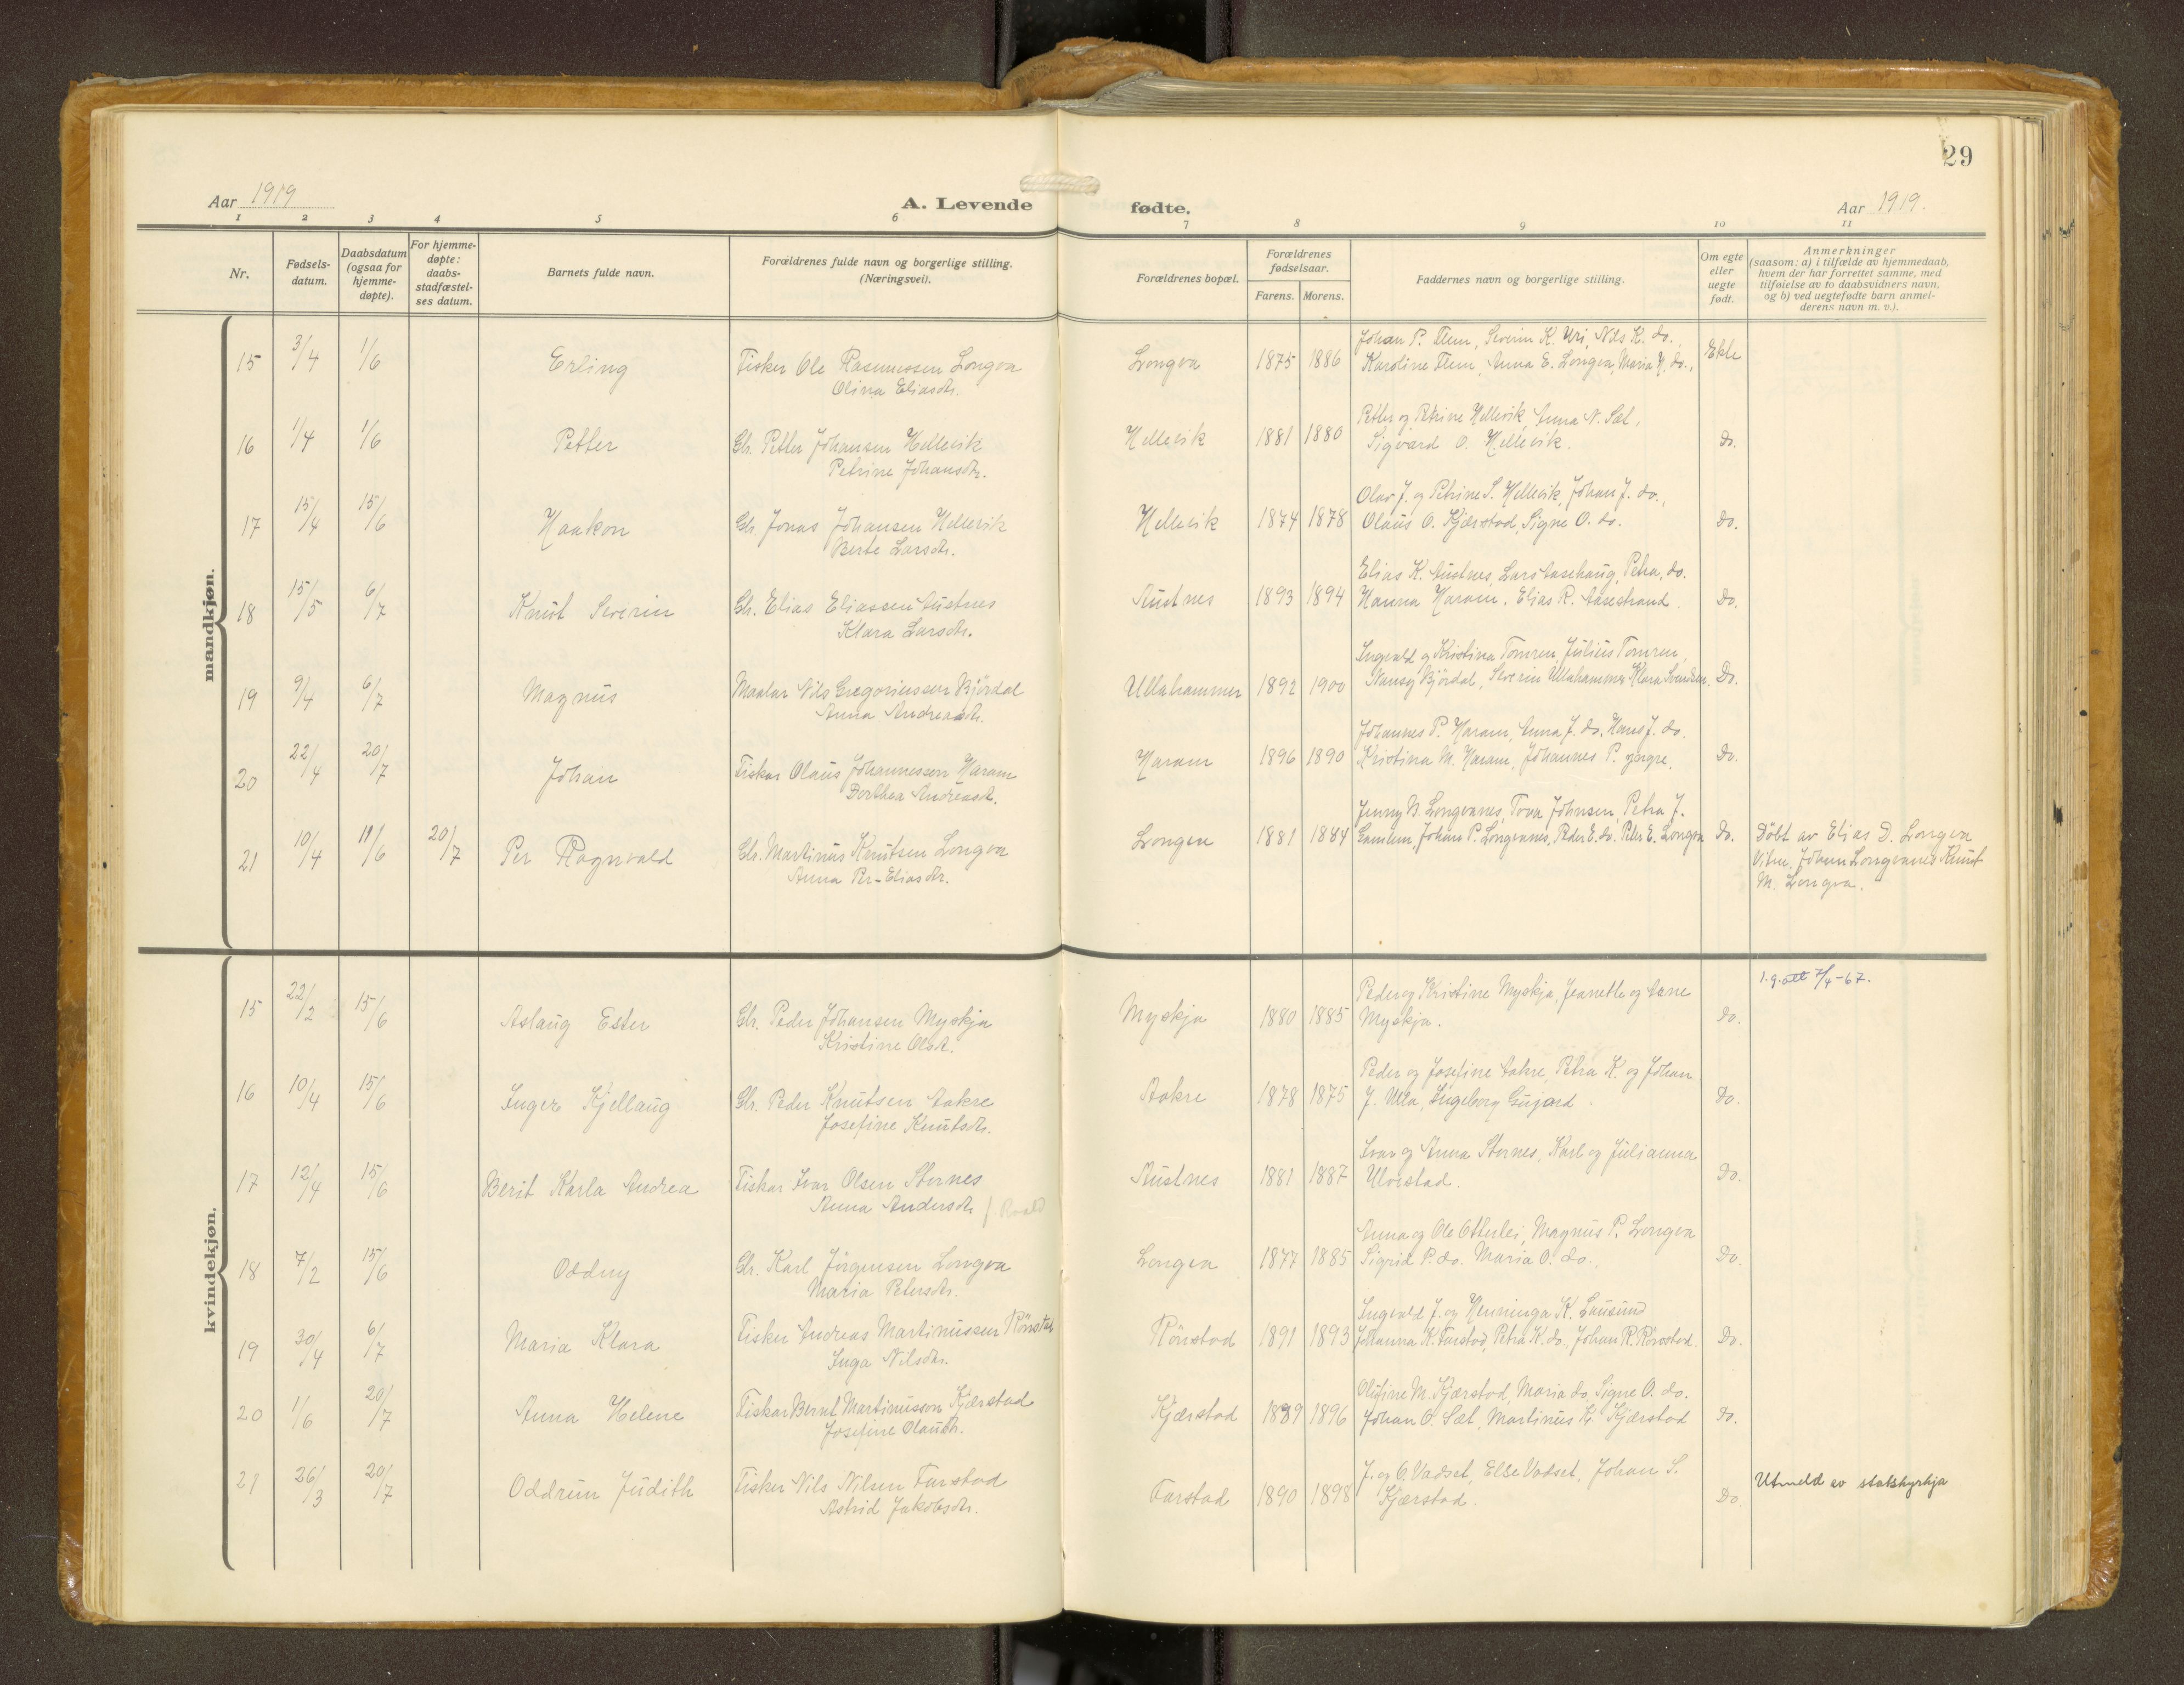 29
Aar 1919
A. Levende fødte.
Aar 1919.
1 2 3 4 5 6 7 8 9 10 11
Nr.
Fødsels-
datum.
Daabsdatum
(ogsaa for
hjemme-
døpte).
For hjemme-
døpte:
daabs-
stadfæstel-
ses datum.
Barnets fulde navn.
Forældrenes fulde navn og borgerlige stilling.
(Næringsvei).
Forældrenes bopæl.
Forældrenes
fødselsaar.
Farens. Morens.
Faddernes navn og borgerlige stilling.
Om egte
eller
uegte
født.
Anmerkninger
(saasom: a) i tilfælde av hjemmedaab,
hvem der har forrettet samme, med
tilføielse av to daabsvidners navn,
og b) ved uegtefødte barn anmel-
derens navn m. v.).
mandkjøn.
15 3/4 1/6 Erling
Fisker Ole Rasmussen Longva
Olina Eliasdtr.
Longva 1875 1886
Johan P. Flem, Severin K. Uri, Nils K. do.,
Karoline Flem, Anna E. Longva, Maria N. do.,
Ekte
16 1/4 1/6 Petter
Gbr. Petter Johansen Hellevik
Petrine Johansdtr.
Hellevik 1881 1880
Petter og Petrine Hellevik, Anna N. Sæt,
Sigvard O. Hellevik.
do.
17 15/4 15/6 Haakon
Gbr. Jonas Johansen Hellevik
Berte Larsdtr.
Hellevik 1874 1878
Olav J. og Petrine S. Hellevik, Johan J. do.,
Olaus O. Kjærstad, Signe O. do.
Do.
18 15/5 6/7 Knut Severin
Gbr. Elias Eliassen Austnes
Klara Larsdtr.
Austnes 1893 1894
Elias K. Austnes, Lars Aasehaug, Petra, do.
Hanna Haram. Elias R. Aasestrand.
Do.
19 9/4 6/7 Magnus
Maalar Nils Gregoriussen Bjørdal
Anna Andreasdtr.
Ullahammer 1892 1900
Ingvald og Kristina Tomren, Julius Tomren,
Nansy Bjørdal, Severin Ullahammer, Klara Svendsen.
Do.
20 22/4 20/7 Johan
Fiskar Olaus Johannessen Haram
Dorthea Andreasdt.
Haram 1896 1890
Johannes P. Haram, Anna J. do. Hans J. do.
Kristina M. Haram, Johannes P. yngre.
Do.
21 10/4 11/6 20/7 Per Ragnvald
Gbr. Martinus Knutsen Longva
Anna Per-Eliasdtr.
Longva 1881 1884
Jenny B. Longvanes, Tova Johnsen, Petra J.
Gamlem, Johan P. Longvanes, Peder E. do. Peter E. Longva
Do.
Döbt av Elias D. Longva
Vitne, Johan Longvanes Knut
M. Longva.
kvindekjøn.
15 22/2 15/6 Aslaug Ester
Gbr. Peder Johansen Myskja
Kristine Olsdt.
Myskja 1880 1885
Peder og Kristine Myskja, Jeanette og Aane
Myskja.
Do.
1.g. att 7/4-67.
16 10/4 15/6 Inger Kjellaug
Gbr. Peder Knutsen Aakre
Josefine Knutsdtr.
Aakre 1878 1875
Peder og Josefine Aakre, Petra K. og Johan
J. Ulla, Ingeborg Gujord.
Do.
17 12/4 15/6 Berit Karla Andrea
Fiskar Ivar Olsen Stornes
Anna Andersdtr. f. Roald
Austnes 1881 1887
Ivar og Anna Stornes, Karl og Julianna
Ulvestad.
Do.
18 7/2 15/6 Oddny
Gbr. Karl Jörgensen Longva
Maria Petersdtr.
Longva 1877 1885
Anna og Ole Otterlei, Magnus P. Longva
Sigrid P. do. Maria O. do.
Do.
19 30/4 6/7 Maria Klara
Fisker Andreas Martinussen Rönstad
Inga Nilsdtr.
Rönstad 1891 1893
Ingvald J. og Henninga K. Lausund
Johanna K. Farstad, Petra K. do., Johan R. Rönstad.
Do.
20 1/6 20/7 Anna Helene
Fiskar Bernt Martinussen Kjærstad
Josefine Olausdtr.
Kjærstad 1889 1896
Olufine M. Kjærstad, Maria do, Signe O. do.
Johan O. Sæt, Martinus Kr. Kjærstad
Do.
21 26/3 20/7 Oddrun Judith
Fisker Nils Nilsen Farstad
Astrid Jakobsdtr.
Farstad 1890 1898
J. og O. Vadset, Else Vadset, Johan S.
Kjærstad.
Do.
Utmeld av statskyrkja